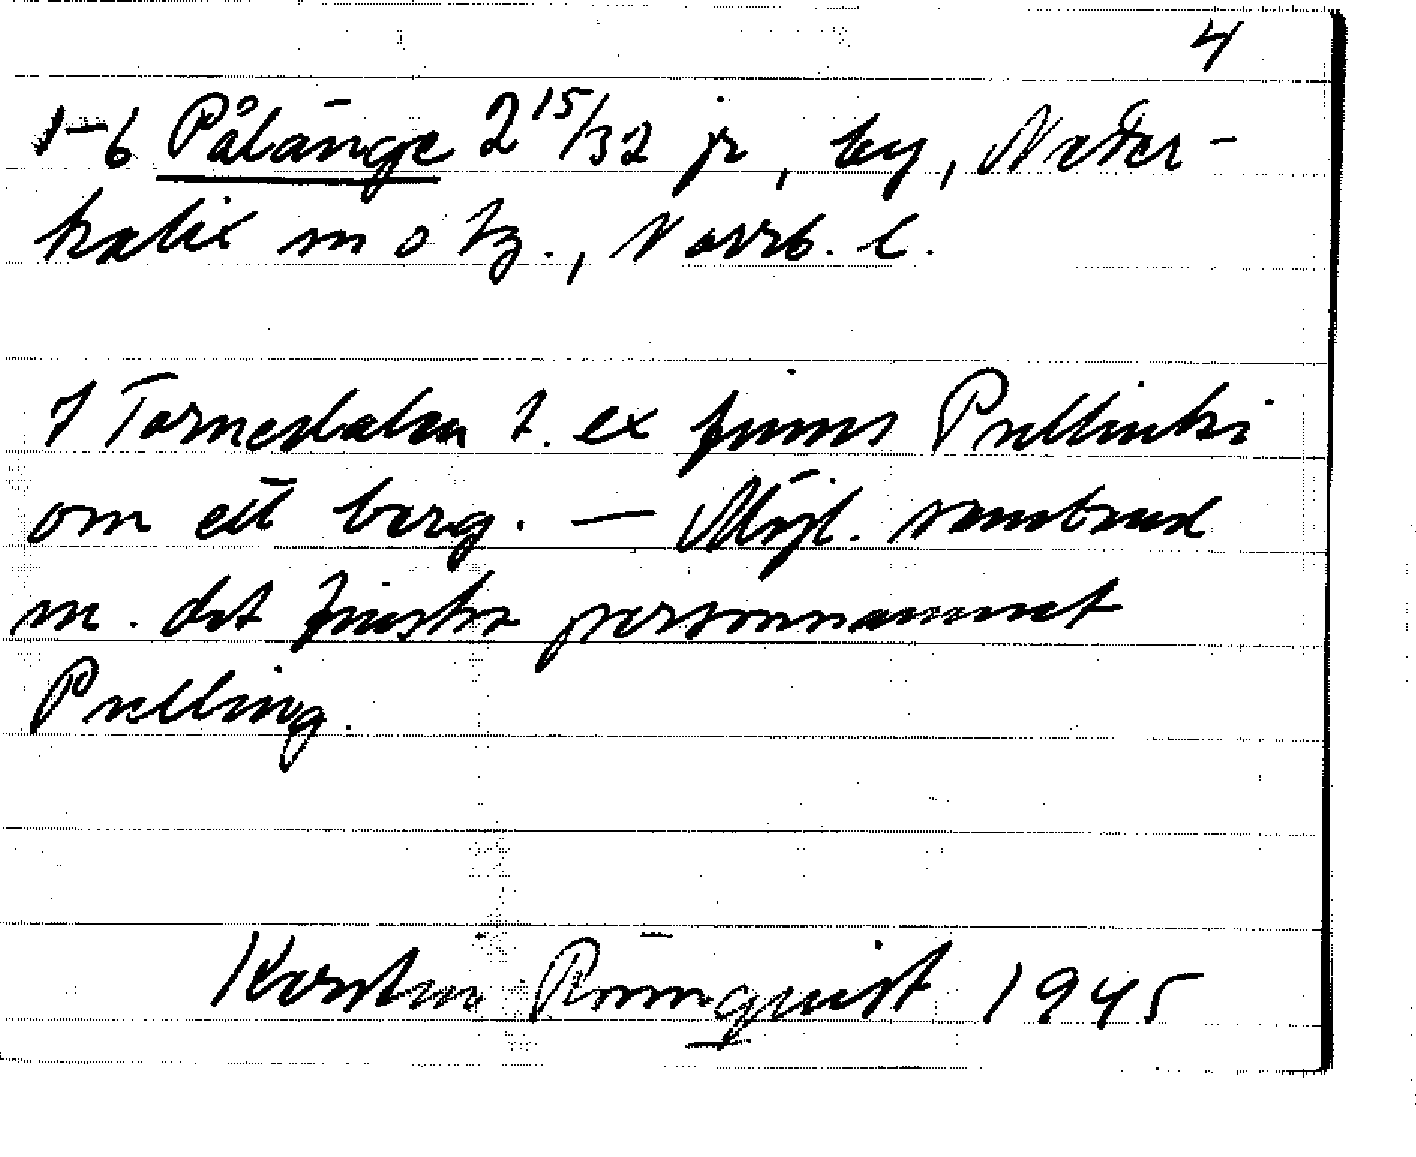 4
1-6 Pålänge 2 15/32 jr, by, Neder-
kalix sn o tg., Norrb. l.
I Tornedalen t. ex finns Prellinki
om ett berg. — Möjl. samband
m. det finska personnamnet
Prelling.
Kerstin Rönnquist 1945